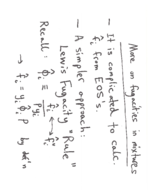 More on fugacities in mixtures
- It is complicated to calc.
f̂ᵢ from EOS's.
- A simpler approach:
Lewis Fugacity "Rule"
Recall: ϕ̂ᵢ ≡ f̂ᵢ / Pyᵢ
→ f̂ᵢ = yᵢ ϕ̂ᵢ P by def'n